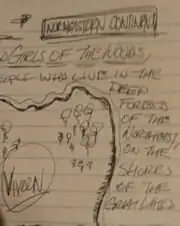 NORTHEASTERN CONTINENT
GIRLS OF THE WOODS,
PEOPLE WHO LIVE IN THE
DEEP
FORESTS
OF THE
ON THE
SHORES
OF THE
GREAT LAKES